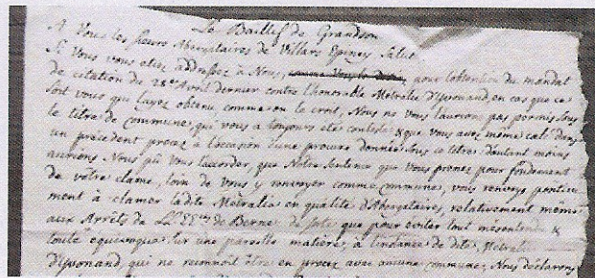 Le Baillif de Grandson
A Vous les sieurs Abergataires de Villars Epeney Salut
Si Vous vous etiez addressez à Nous, pour l'obtention du mandat
de citation du 28e Avril dernier contre l'honorable Metralie d'Yvonand, en cas que ce
soit vous qui l'ayez obtenu, comme on le croit, Nous ne vous l'aurions pas permis sous
le titre de Commune, qui vous a toujours eté contesté & que vous avez même cedé dans
un précedent procez à l'occasion d'une procure donnée sous ce titre; d'autant moins
aurions Nous pû vous l'accorder, que Notre Sentence que Vous prenez pour fondement
de vôtre clame, loin de Vous y renvoyer comme Commune, vous renvoye
ment à clamer ladite Metralie en qualité d'Abergataires, relativement même
aux Arrêts de LL.EExes de Berne; de sorte que pour éviter tout mésentendu &
toute équivoque sur une pareille matière, à l'instance de dite Metralie
d'Yvonand, qui ne reconnoit être en procez avec aucune Commune, Nous déclarons